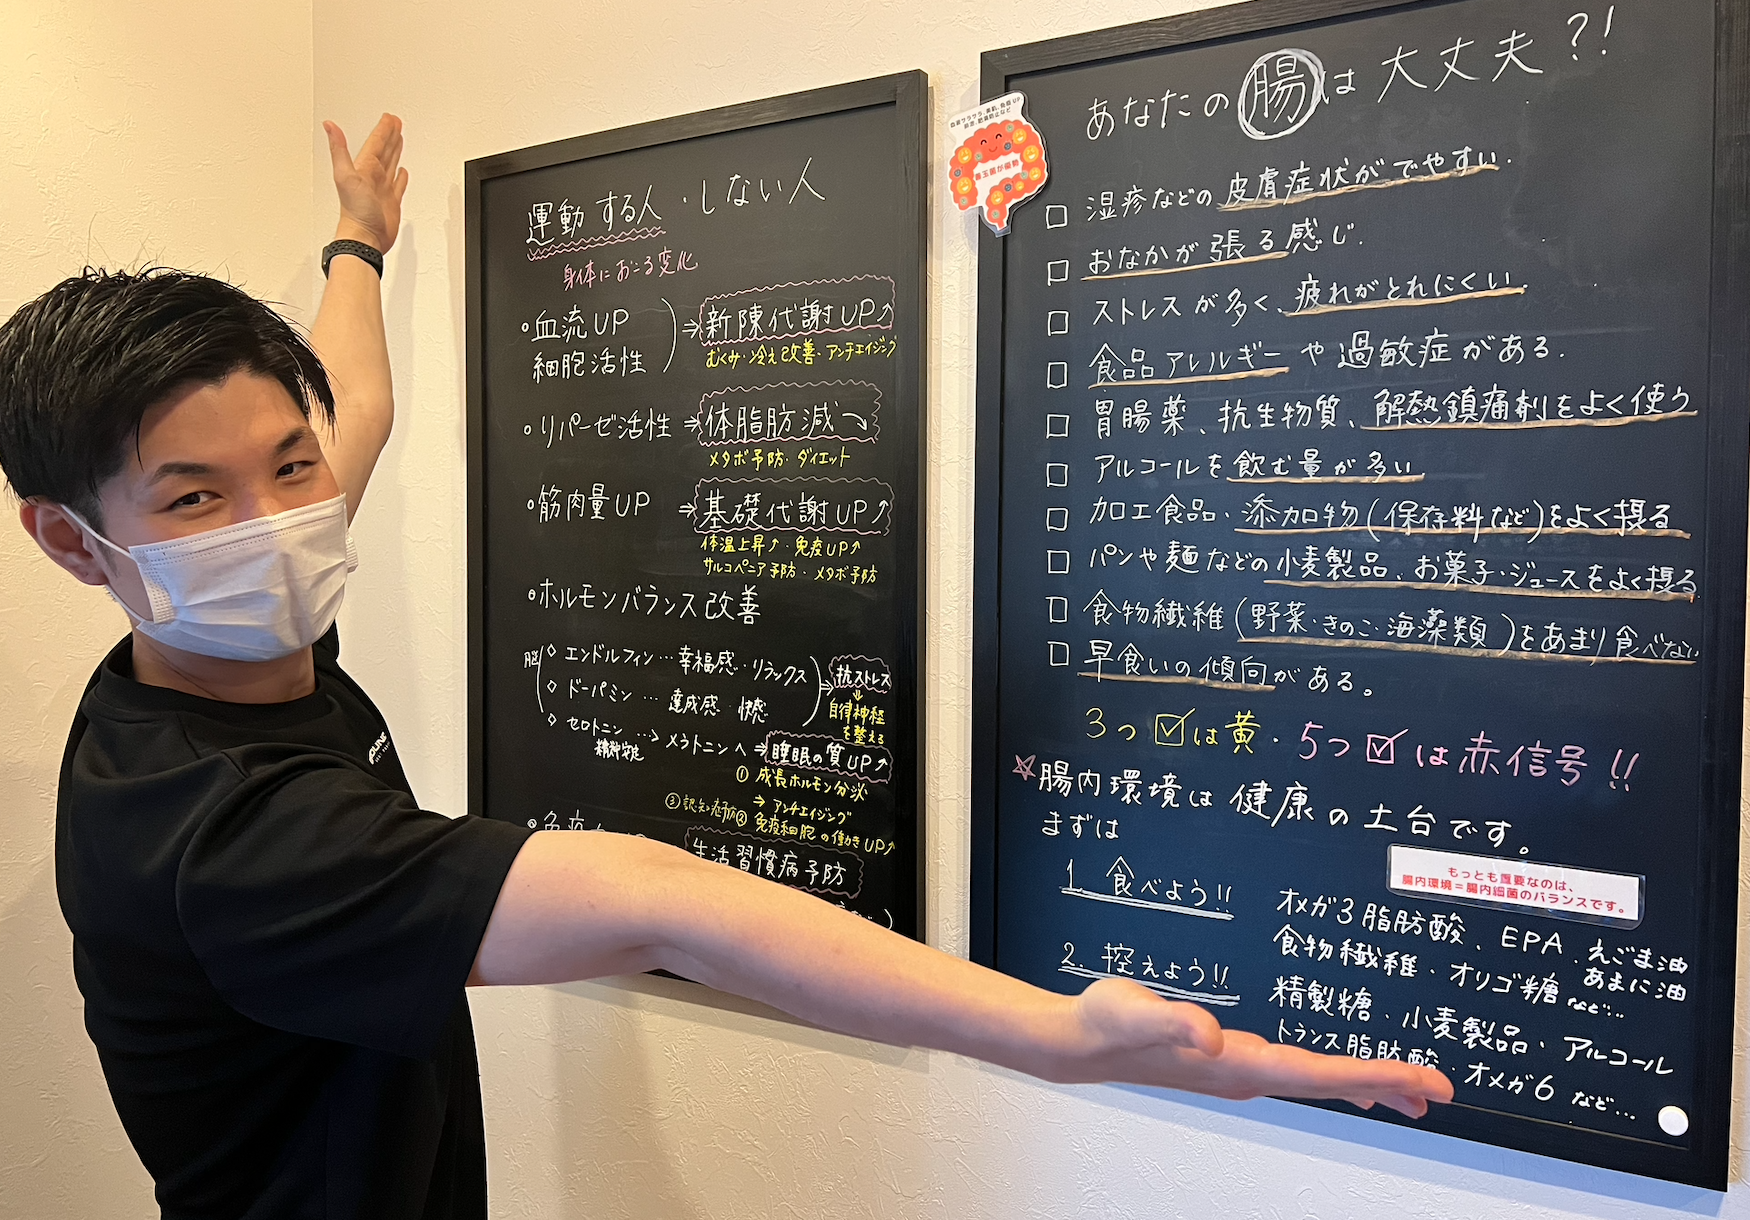 運動する人・しない人
身体におこる変化
・血流UP
細胞活性
⇒新陳代謝UP↑
むくみ・冷え改善・アンチエイジング
・リパーゼ活性⇒体脂肪減↘
メタボ予防・ダイエット
・筋肉量UP ⇒基礎代謝UP↑
体温上昇↑・免疫UP↑
サルコペニア予防・メタボ予防
・ホルモンバランス改善
脳
◇エンドルフィン…幸福感・リラックス
◇ドーパミン…達成感・快感
⇒抗ストレス
⇓
自律神経
を整える
◇セロトニン…→メラトニンへ⇒睡眠の質UP↑
精神安定
①成長ホルモン分泌
→アンチエイジング
③認知症予防②免疫細胞の働きUP↑
生活習慣病予防
あなたの腸は大丈夫?!
善玉菌が優勢
□湿疹などの皮膚症状がでやすい.
□おなかが張る感じ.
□ストレスが多く、疲れがとれにくい.
□食品アレルギーや過敏症がある.
□胃腸薬、抗生物質、解熱鎮痛剤をよく使う
□アルコールを飲む量が多い
□加工食品・添加物(保存料など)をよく摂る
□パンや麺などの小麦製品、お菓子・ジュースをよく摂る
□食物繊維(野菜・きのこ・海藻類)をあまり食べない
□早食いの傾向がある。
3つ☑は黄・5つ☑は赤信号!!
☆腸内環境は健康の土台です。
まずは
もっとも重要なのは、
腸内環境=腸内細菌のバランスです。
1. 食べよう!!
オメガ3脂肪酸、EPA、えごま油
あまに油
食物繊維・オリゴ糖など…
2. 控えよう!!
精製糖・小麦製品・アルコール
トランス脂肪酸・オメガ6など…